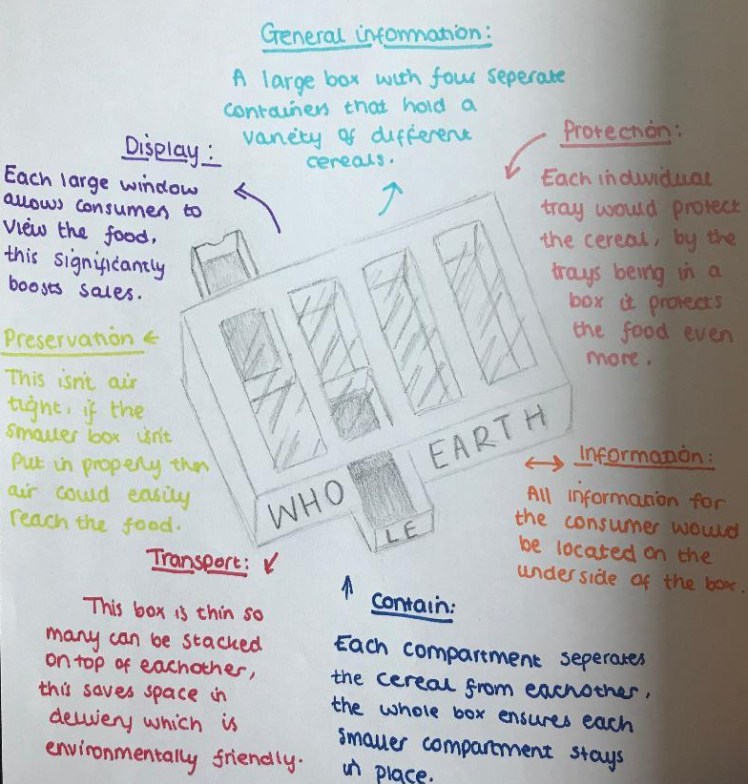 General information:
A large box with four seperate
containers that hold a
variety of different
cereals.
Display:
Each large window
allows consumers to
view the food,
this significantly
boosts sales.
Protection:
Each individual
tray would protect
the cereal, by the
trays being in a
box it protects
the food even
more.
Preservation
This isn't air
tight, if the
smaller box isn't
put in properly then
air could easily
reach the food.
WHO
LE
EARTH
Information:
All information for
the consumer would
be located on the
underside of the box.
Transport:
This box is thin so
many can be stacked
on top of eachother,
this saves space in
delivery which is
environmentally friendly.
Contain:
Each compartment seperates
the cereal from eachother,
the whole box ensures each
smaller compartment stays
in place.